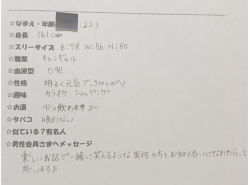 ☆なまえ・年齢 (22)
☆身長 161cm
☆スリーサイズ B:78 W:56 H:80
☆職業 キャンギャル
☆血液型 O型
☆性格 明るく元気で
☆趣味 カラオケ・ショッピング
☆お酒 少し飲めます
☆タバコ 吸わない
☆似ている?有名人
☆男性会員さまへメッセージ
楽しいお話で一緒に笑えるような男性の方とお知り合いになれたらと
思います